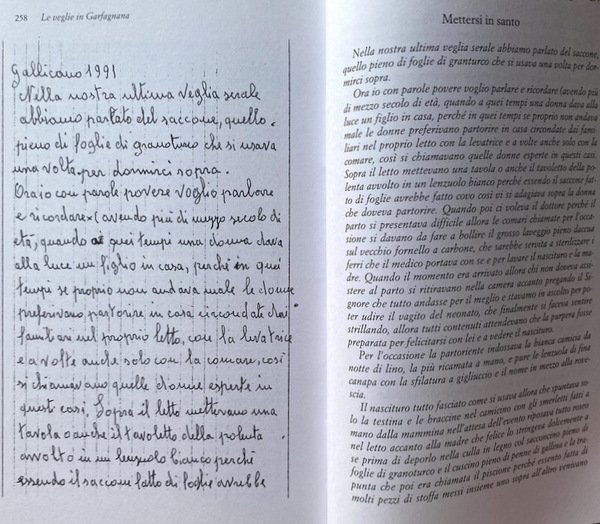 258 Le veglie in Garfagnana
Gallicano 1991
Nella nostra ultima veglia serale
abbiamo parlato del saccone, quello
pieno di foglie di granoturco che si usava
una volta per dormirci sopra.
Ora io con parole povere voglio parlare
e ricordare (avendo più di mezzo secolo di
età, quando a quei tempi una donna dava
alla luce un figlio in casa, perché in quei
tempi se proprio non andava male le donne
preferivano partorire in casa circondate dai
familiari nel proprio letto, con la levatrice
e a volte anche solo con la comare, così
si chiamavano quelle donne esperte in
questi casi. Sopra il letto mettevano una
tavola o anche il tavoletto della polenta
avvolto in un lenzuolo bianco perché
essendo il saccone fatto di foglie avrebbe
Mettersi in santo
Nella nostra ultima veglia serale abbiamo parlato del saccone,
quello pieno di foglie di granturco che si usava una volta per dor-
mirci sopra.
Ora io con parole povere voglio parlare e ricordare (avendo più
di mezzo secolo di età, quando a quei tempi una donna dava alla
luce un figlio in casa, perché in quei tempi se proprio non andava
male le donne preferivano partorire in casa circondate dai fami-
liari nel proprio letto con la levatrice e a volte anche solo con la
comare, così si chiamavano quelle donne esperte in questi casi.
Sopra il letto mettevano una tavola o anche il tavoletto della po-
lenta avvolto in un lenzuolo bianco perché essendo il saccone fat-
to di foglie avrebbe fatto covo così vi si adagiava sopra la donna
che doveva partorire. Quando poi ci voleva il dottore perché il
parto si presentava difficile allora le comari chiamate per l'occa-
sione si davano da fare a bollire il grosso laveggio pieno d'acqua
sul vecchio fornello a carbone, che sarebbe servita a sterilizzare i
ferri che il medico portava con sé e per lavare il nascituro e la ma-
dre. Quando il momento era arrivato allora chi non doveva assi-
stere al parto si ritiravano nella camera accanto pregando il Si-
gnore che tutto andasse per il meglio e stavamo in ascolto per po-
ter udire il vagito del neonato, che finalmente si faceva sentire
strillando, allora tutti contenti attendevamo che la puerpera fosse
preparata per felicitarsi con lei e a vedere il nascituro.
Per l'occasione la partoriente indossava la bianca camicia da
notte di lino, la più ricamata a mano, e pure le lenzuola di fina
canapa con la sfilatura a gigliuccio e il nome in mezzo alla rove-
scia.
Il nascituro tutto fasciato come si usava allora che spuntava so-
lo la testina e le braccine nel camicino con gli smerletti fatti a
mano dalla mammina nell'attesa dell'evento riposava tutto rosso
nel letto accanto alla madre che felice lo stringeva dolcemente a
se prima di deporlo nella culla in legno col sacconcino pieno di
foglie di granoturco e il cuscino pieno di penne di gallina e la tra-
punta che poi era chiamata il piscione perché essento fatta di
molti pezzi di stoffa messi insieme uno sopra all'altro venivano